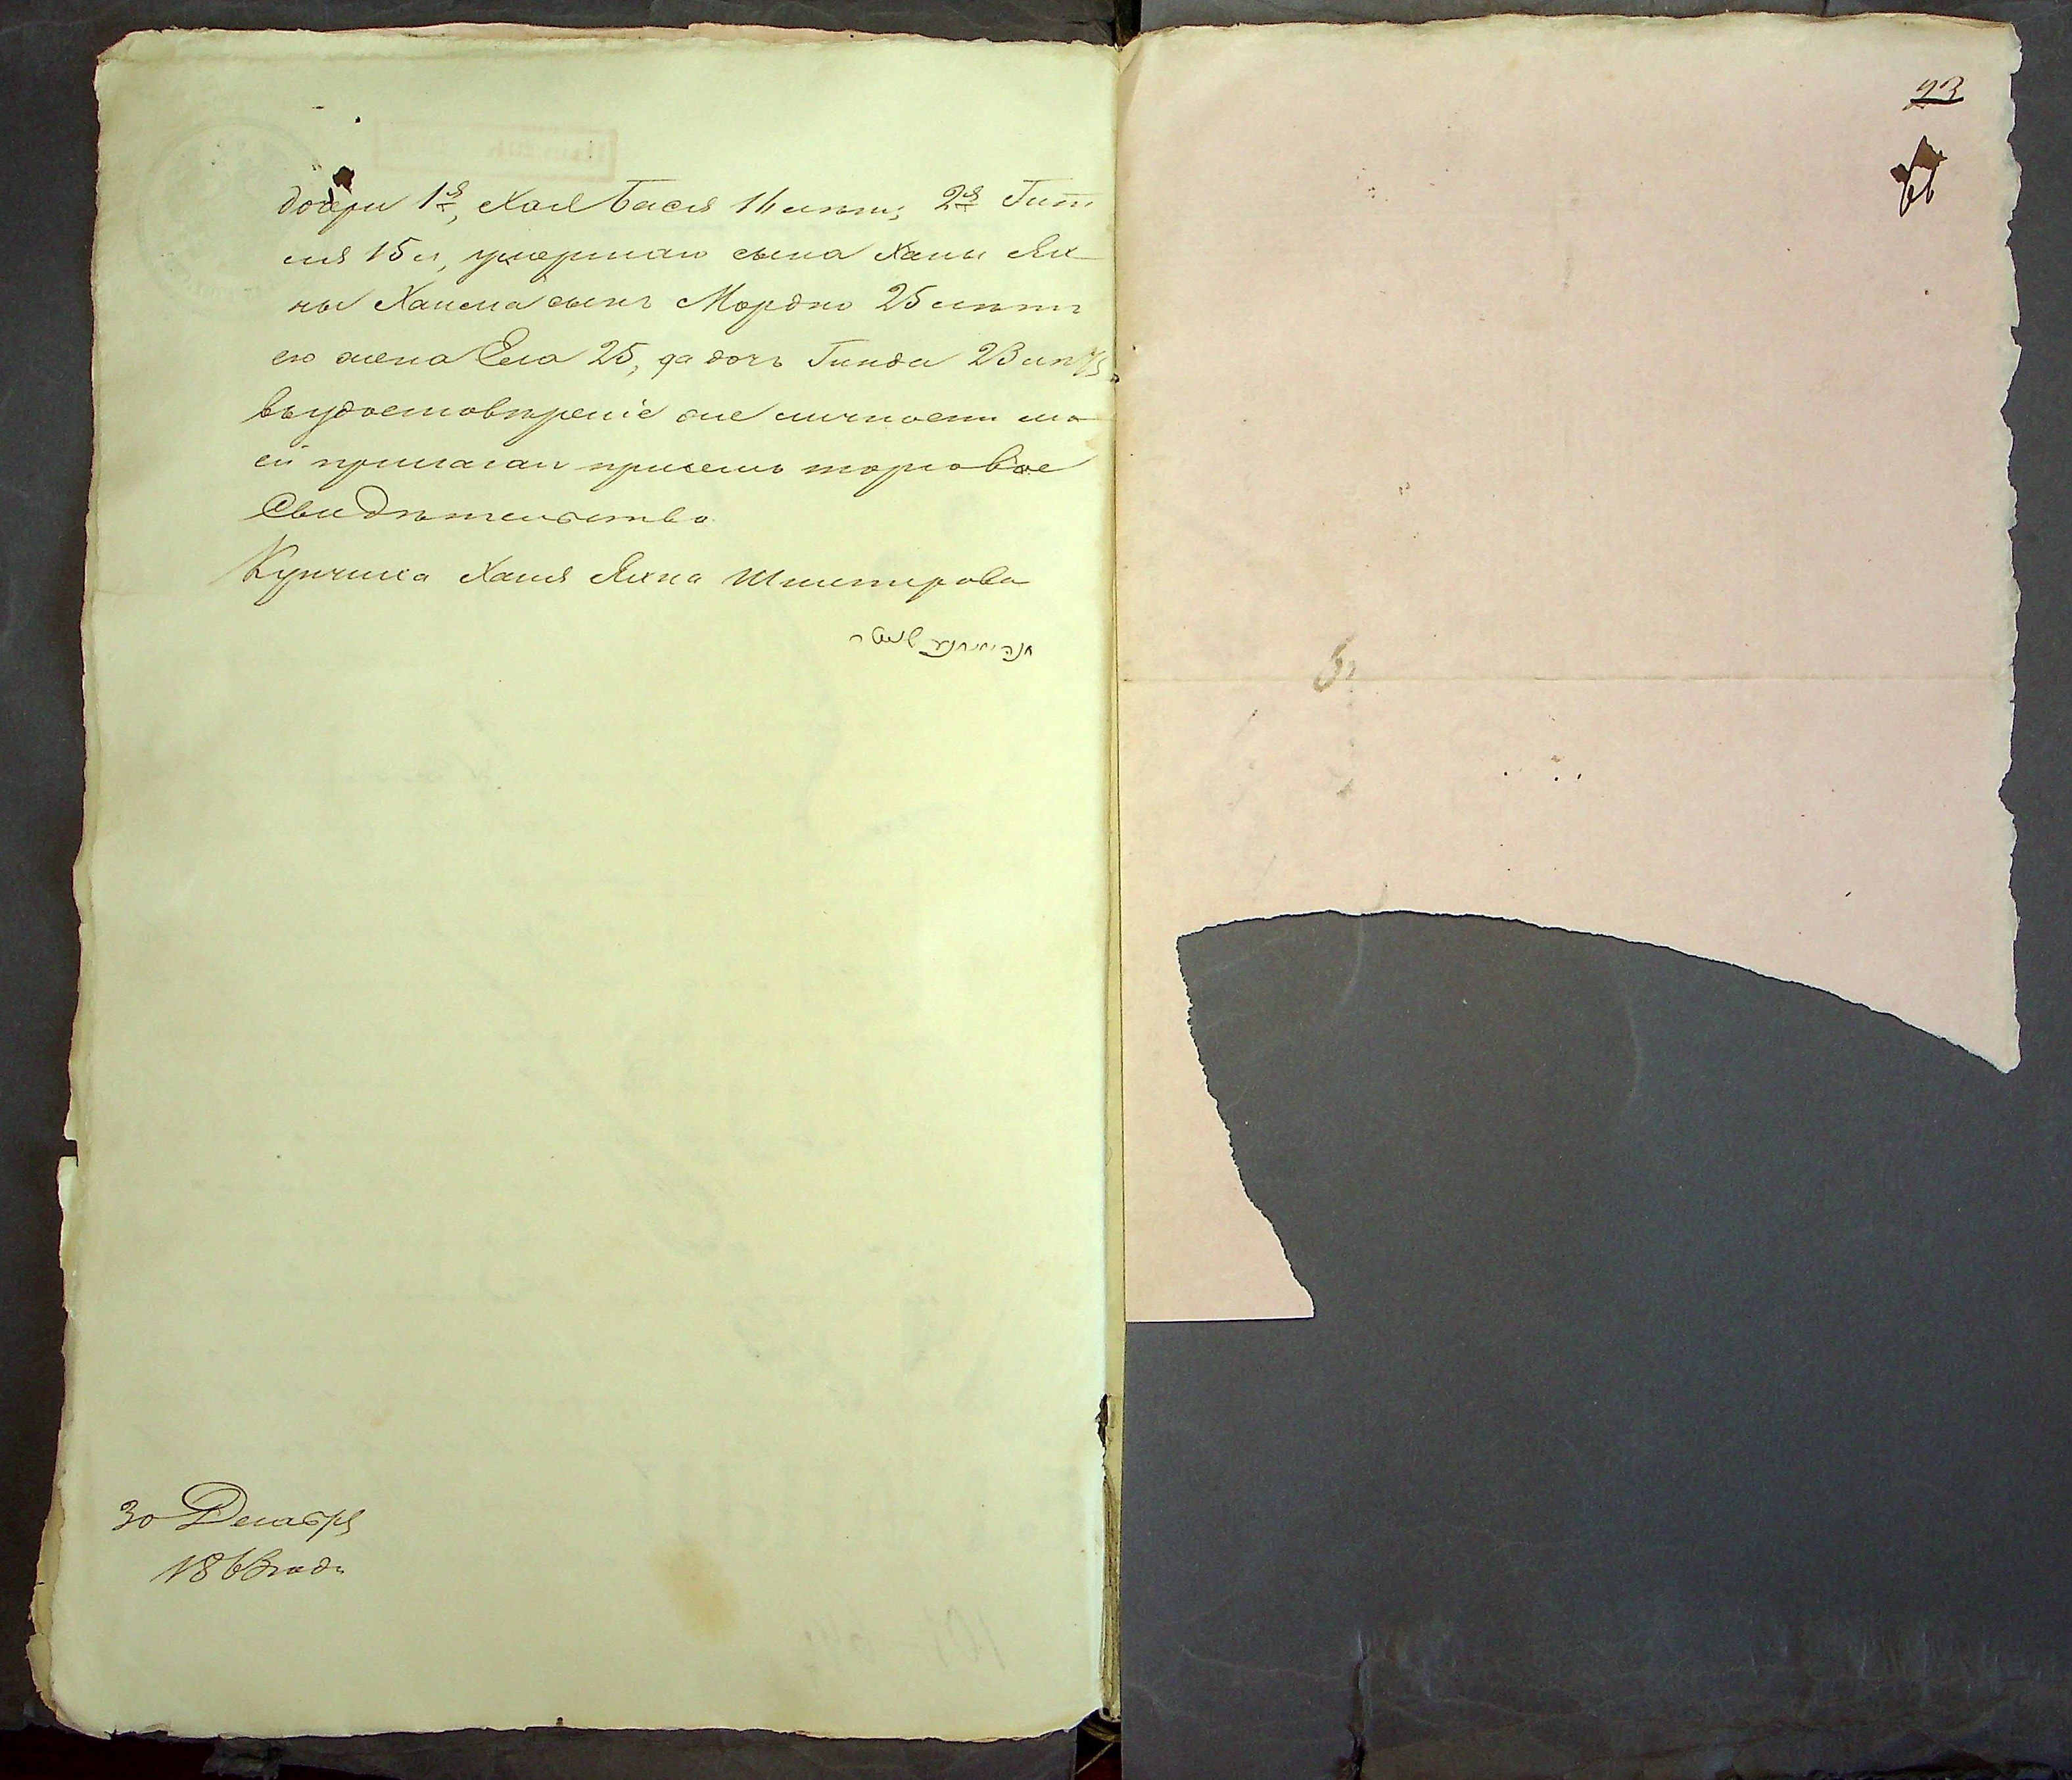 дочери 1ᵃя, Хая Бася 16 летъ, 2ᵃя Гит
ля 15 л, умершаго сына Ханы Ях
ны Хаима сынъ Мордко 25 летъ
его жена Ела 25, да дочь Гинда 23 летъ
въ удостовѣреніе же личности мо
ей прилагаю присемъ торговое
Свидѣтельство
Купчиха Хана Яхна
חנה יאחנע
30 Декабря
1863 года
23